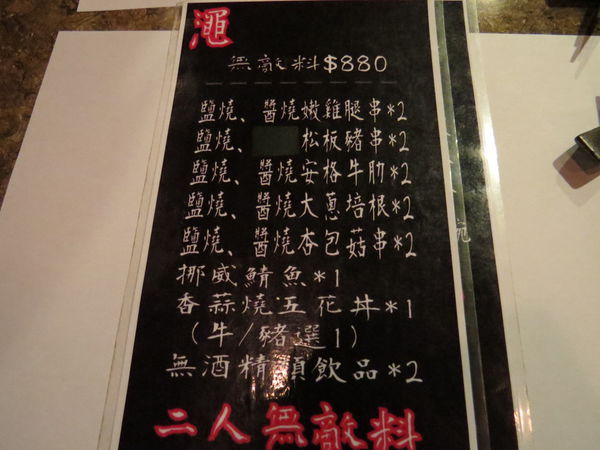 澠
無敵料$880
鹽燒、醬燒嫩雞腿串*2
鹽燒、 松板豬串*2
鹽燒、醬燒安格牛肋*2
鹽燒、醬燒大蔥培根*2
鹽燒、醬燒杏包菇串*2
挪威鯖魚*1
香蒜燒五花丼*1
(牛/豬選1)
無酒精類飲品*2
二人無敵料